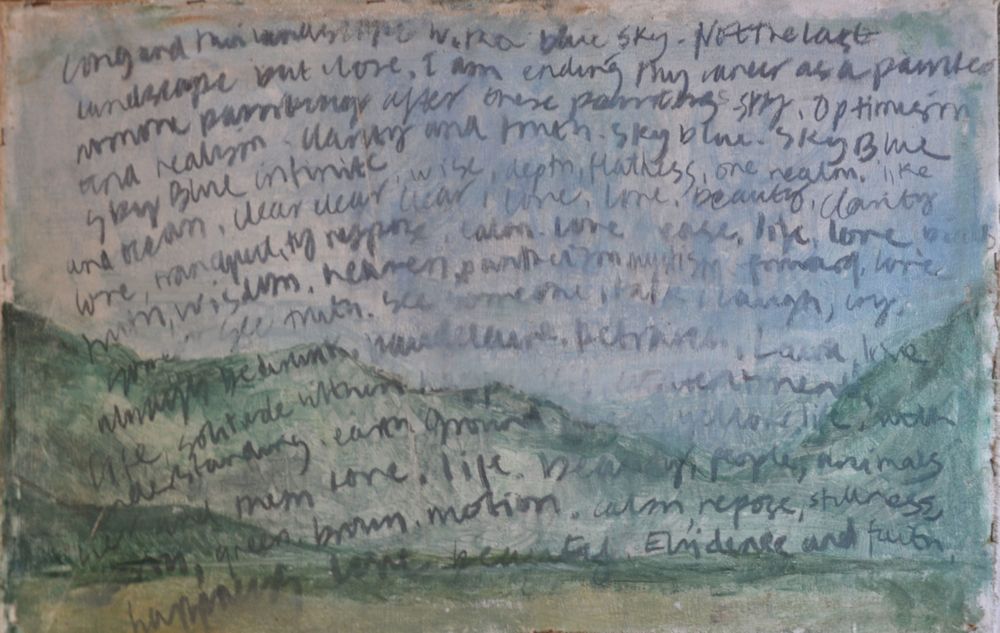 Long and thin landscape with a blue sky. Not the last
landscape but close. I am ending my career as a painter
no more paintings after these paintings sky. Optimism
and realism. Clarity and truth. Sky blue. Sky Blue
Sky Blue infinite, wise, depth, flatness, one realm. like
and ocean, clear clear clear, love, love. beauty, clarity
love, tranquility repose, calm. love ease, life, love
truth, wisdom. heaven, pantheism mysticism forward, love.
see truth. See someone, talk, laugh, cry,
always be drunk. Baudelaire. Petrarch. Laura, love
life, solitude
understanding. earth ground life, with
men love. life. Beauty, people, animals
green. brown. motion. calm repose, stillness,
happiness, love, beauty. Evidence and faith.